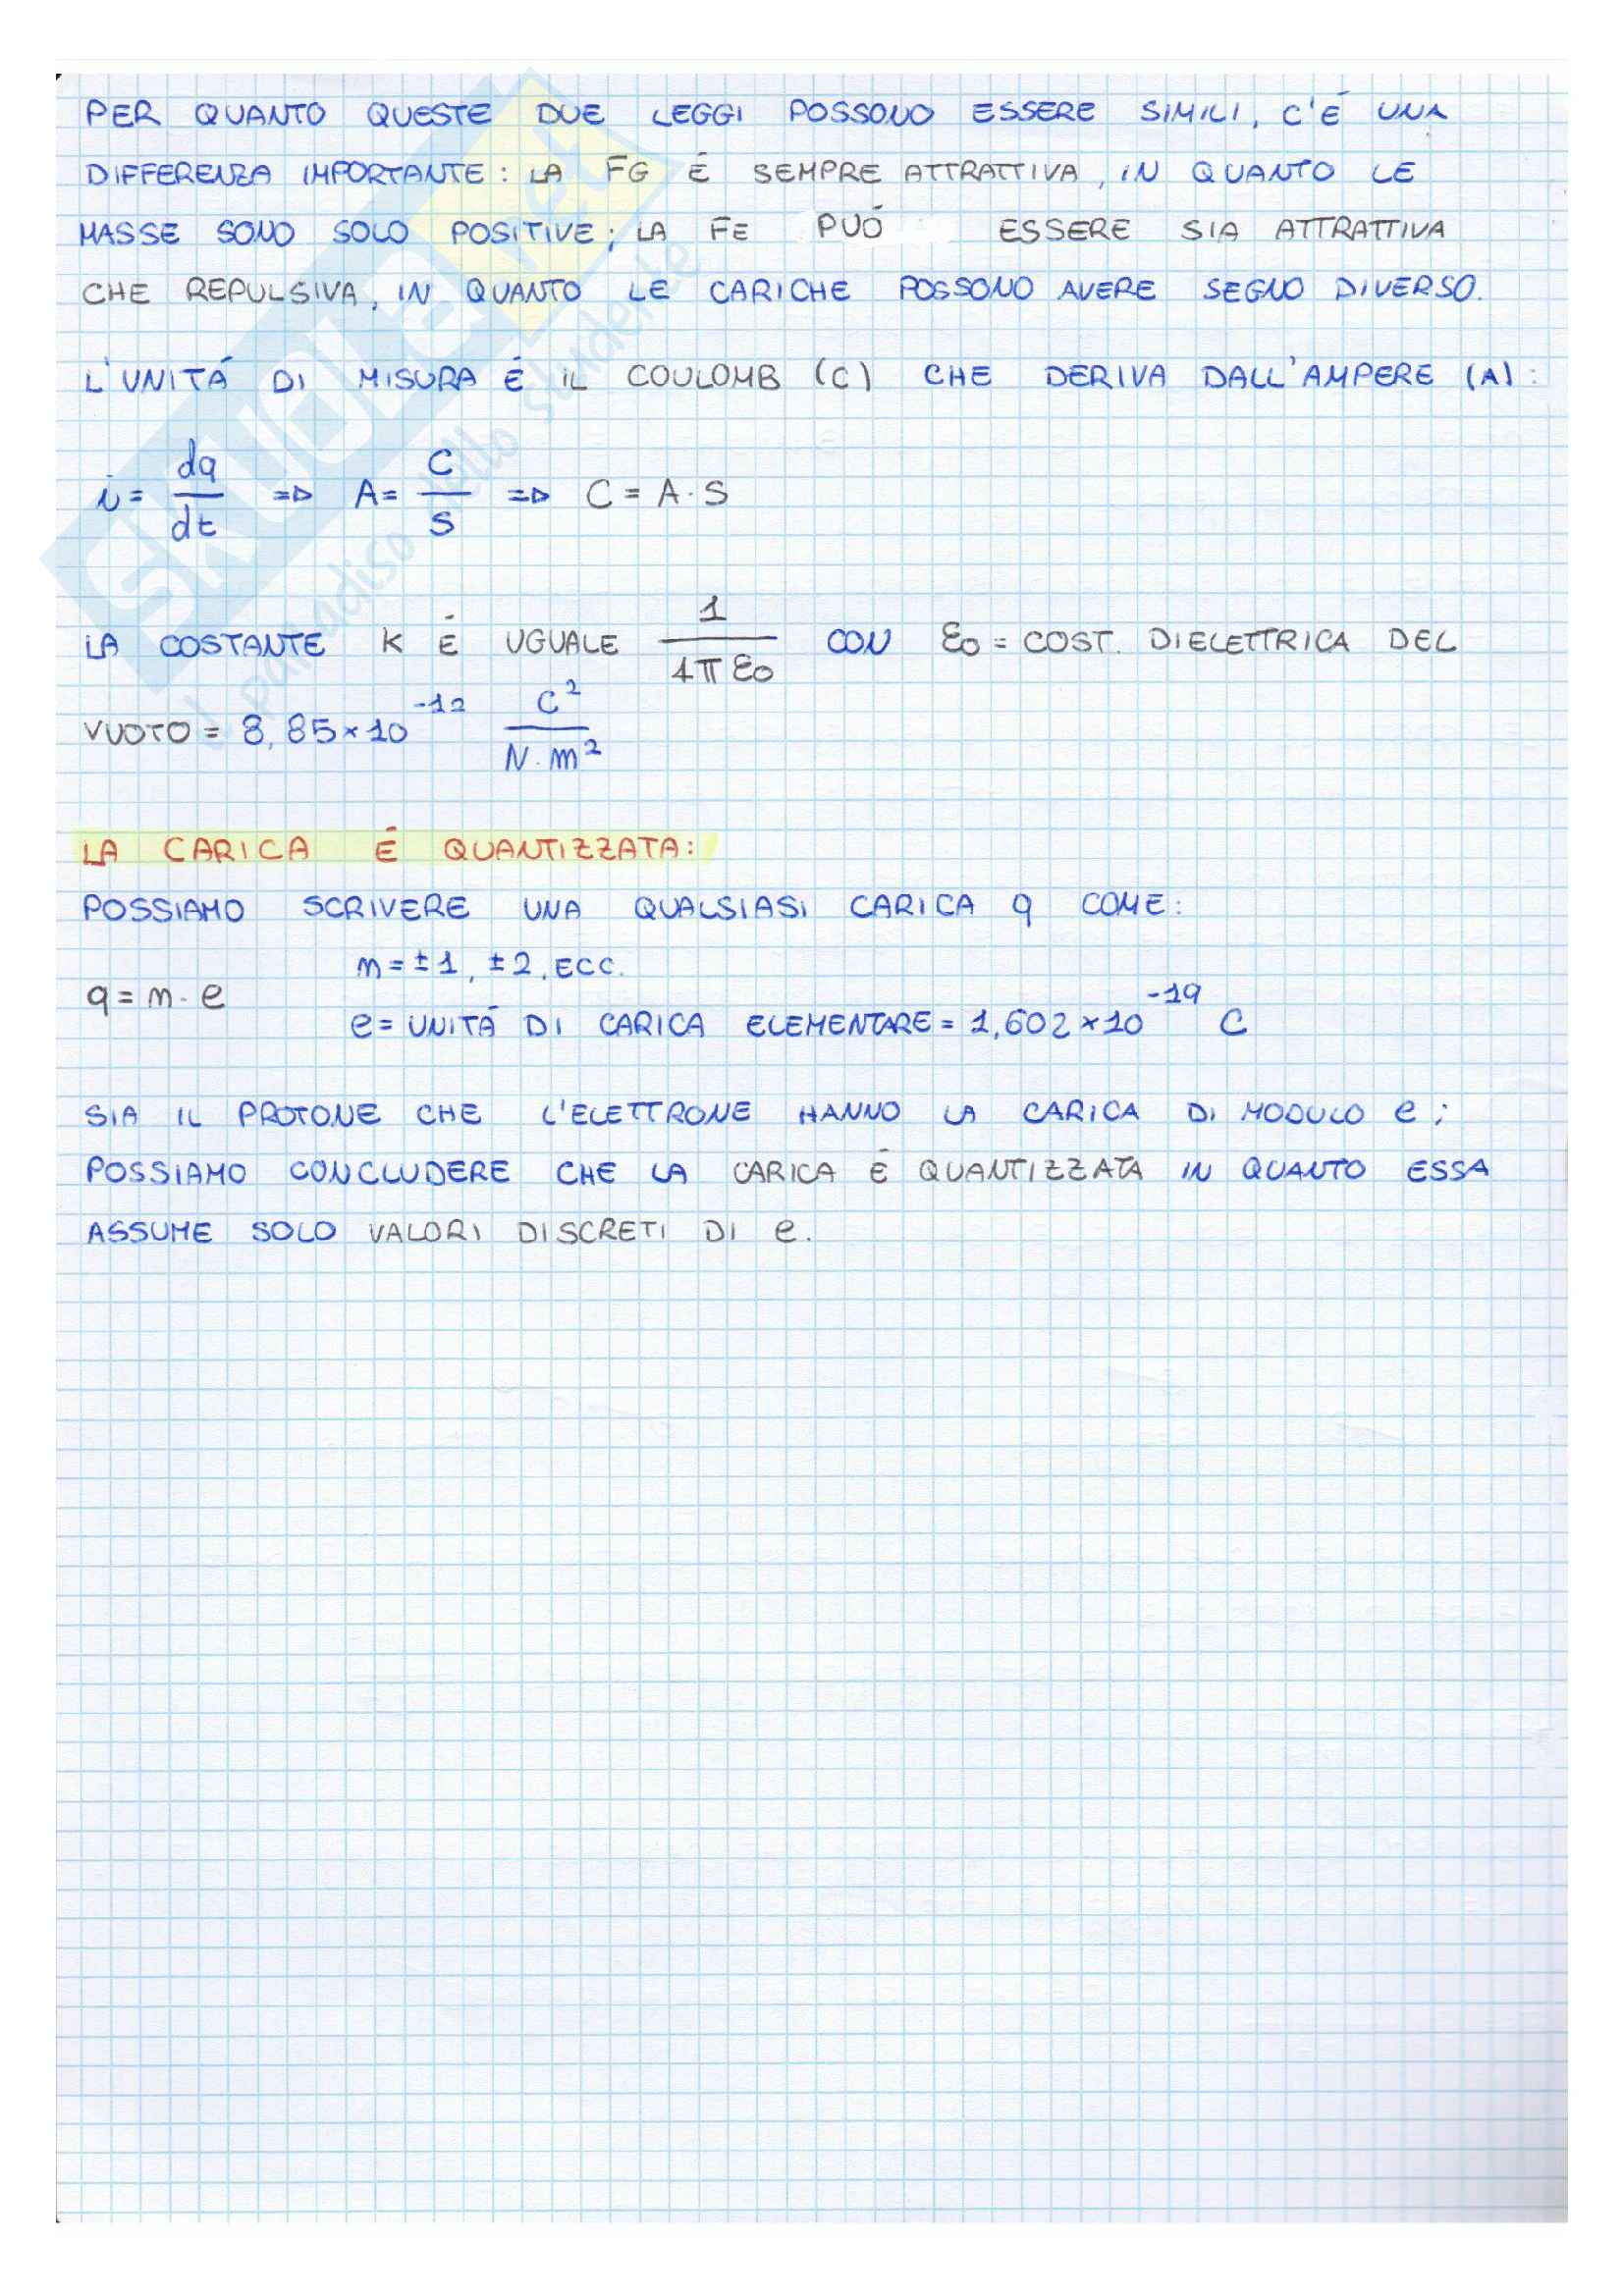 PER QUANTO QUESTE DUE LEGGI POSSONO ESSERE SIMILI, C'É UNA
DIFFERENZA IMPORTANTE: LA FG É SEMPRE ATTRATTIVA, IN QUANTO LE
MASSE SONO SOLO POSITIVE; LA FE PUÓ ESSERE SIA ATTRATTIVA
CHE REPULSIVA, IN QUANTO LE CARICHE POSSONO AVERE SEGNO DIVERSO.
L'UNITÁ DI MISURA É IL COULOMB (C) CHE DERIVA DALL'AMPERE (A):
i = dq/dt => A = C/S => C = A·S
LA COSTANTE K É UGUALE 1/4πε0 CON ε0 = COST. DIELETTRICA DEL
VUOTO = 8,85×10^-12 C²/N·m²
LA CARICA É QUANTIZZATA:
POSSIAMO SCRIVERE UNA QUALSIASI CARICA q COME:
m = ±1, ±2, ECC.
q = m·e
e = UNITÁ DI CARICA ELEMENTARE = 1,602×10^-19 C
SIA IL PROTONE CHE L'ELETTRONE HANNO LA CARICA DI MODULO e;
POSSIAMO CONCLUDERE CHE LA CARICA É QUANTIZZATA IN QUANTO ESSA
ASSUME SOLO VALORI DISCRETI DI e.
SKUOLA.net
il paradiso dello studente